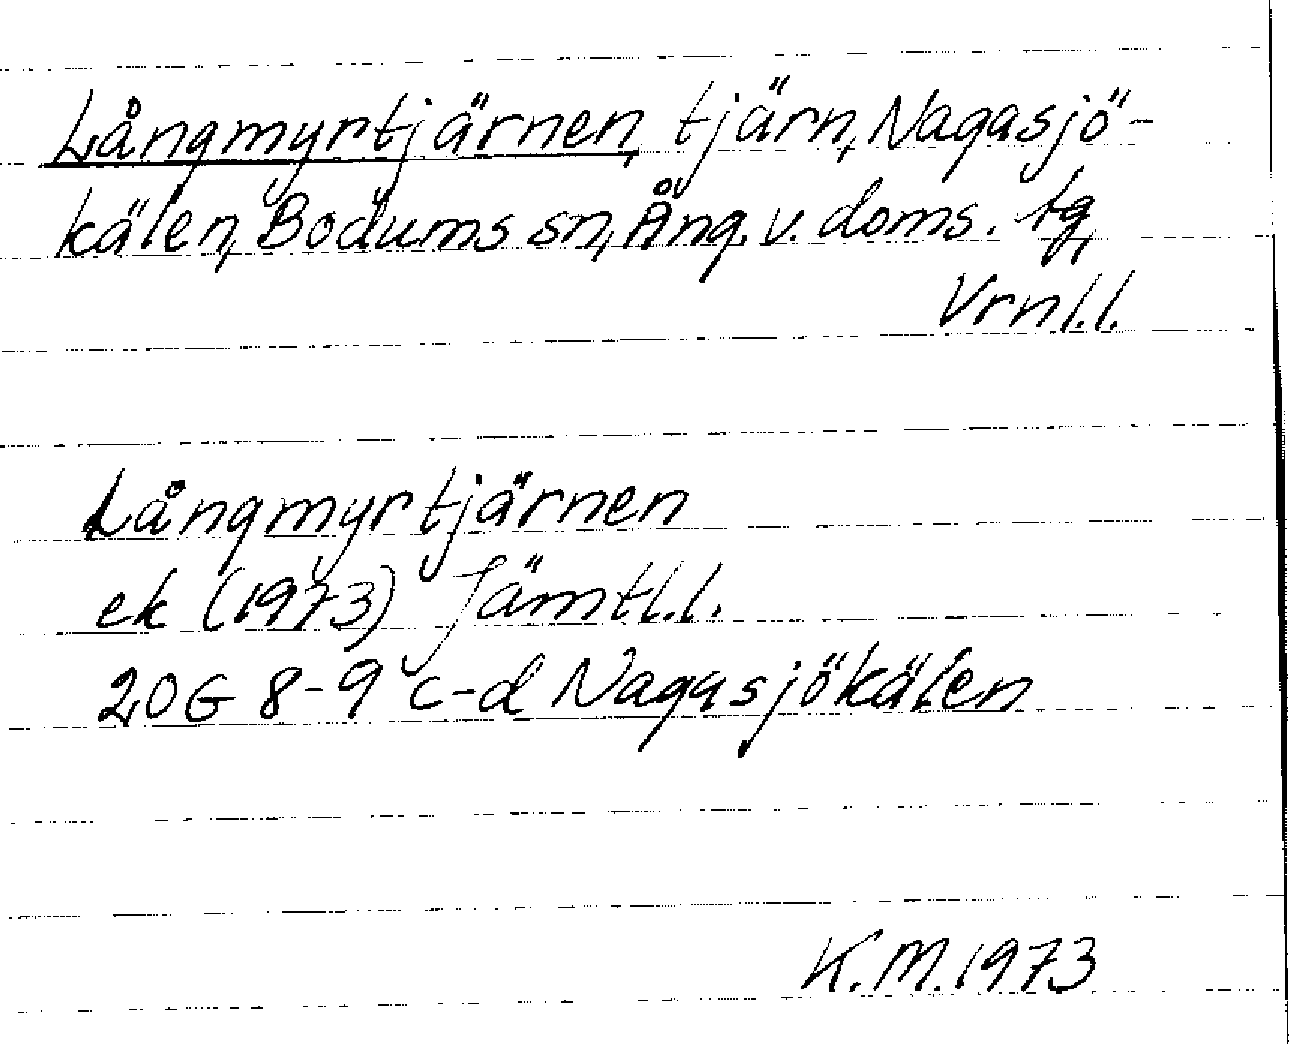 Långmyrtjärnen, tjärn, Nagasjö-
kälen, Bodums sn, Ång. v. doms. tg,
Vrnl.l.
Långmyrtjärnen
ek (1973) Jämtl.l.
20G 8-9 c-d Nagasjökälen
K.M.1973